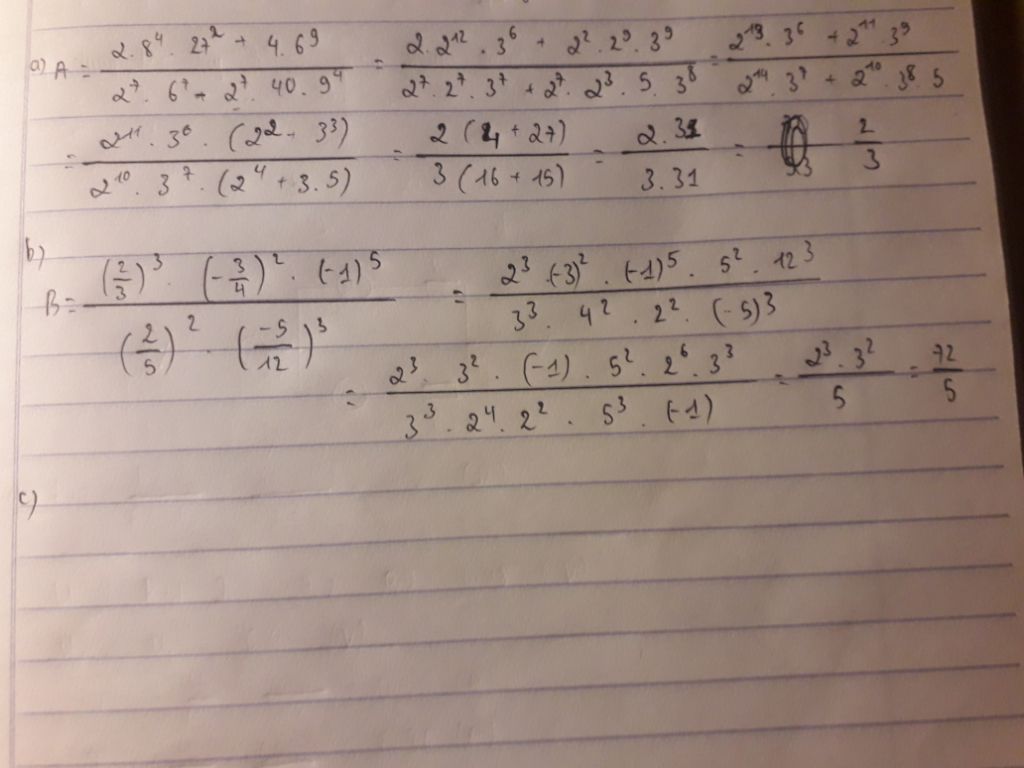 a) A = (2.8⁴ . 27² + 4.6⁹) / (2⁷ . 6⁷ + 2⁷ . 40 . 9⁴) = (2.2¹² . 3⁶ + 2² . 2⁹ . 3⁹) / (2⁷ . 2⁷ . 3⁷ + 2⁷ . 2³ . 5 . 3⁸) = (2¹³ . 3⁶ + 2¹¹ . 3⁹) / (2¹⁴ . 3⁷ + 2¹⁰ . 3⁸ . 5)
= (2¹¹ . 3⁶ . (2² + 3³)) / (2¹⁰ . 3⁷ . (2⁴ + 3.5)) = (2 (4 + 27)) / (3 (16 + 15)) = (2.31) / (3.31) = 2/3
b)
B = ((2/3)³ . (-3/4)² . (-1)⁵) / ((2/5)² . (-5/12)³) = (2³ . (-3)² . (-1)⁵ . 5² . 12³) / (3³ . 4² . 2² . (-5)³)
= (2³ . 3² . (-1) . 5² . 2⁶ . 3³) / (3³ . 2⁴ . 2² . 5³ . (-1)) = (2³ . 3²) / 5 = 72/5
c)